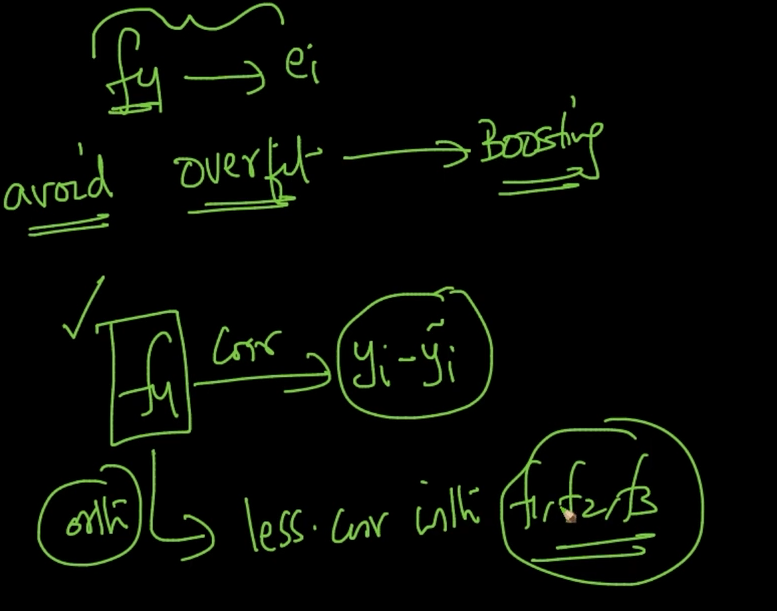 f4 → ei
avoid overfit → Boosting
✓ f4 corr → yi - ỹi
orth → less. corr with f1, f2, f3